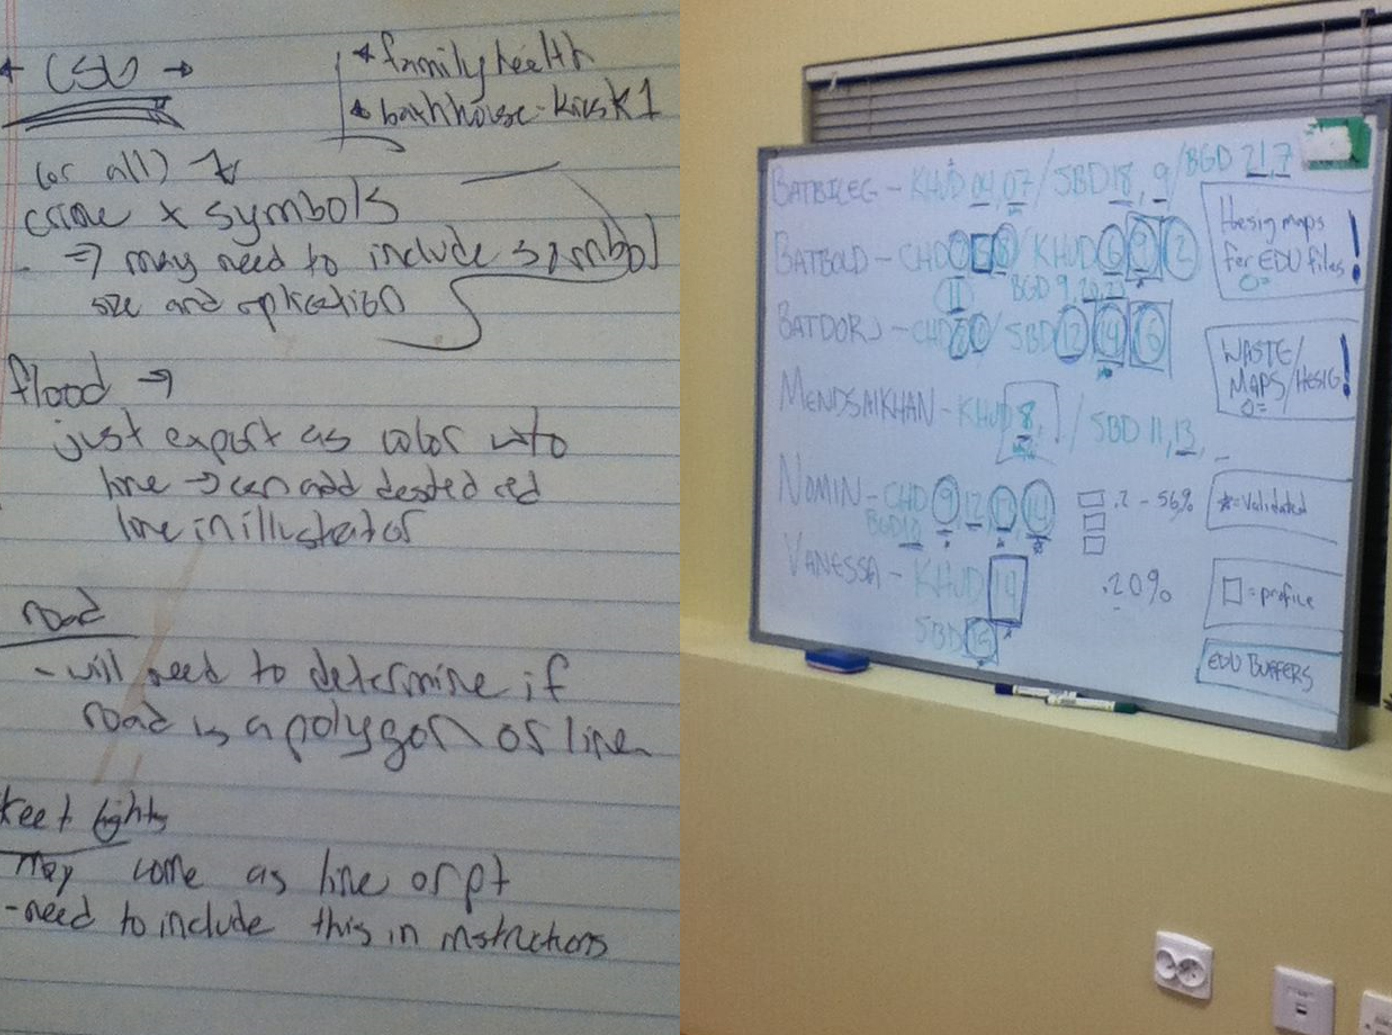 CSU →
* family health
* bathhouse - kiosk 1
(or all)
crime x symbols
⇒ may need to include symbol
size and
flood →
just export as color w/o
line → can add desired
line in illustrator
road
- will need to determine if
road is a polygon or line
lights
may come as line or pt
- need to include this in instructions
BATBILEG - KHUD 04, 07 / SBD 18, 9 / BGD 21, 7
BATBOLD - CHD KHUD 6 9 2
11 BGD 9, 20,
BATDORJ - CHD / SBD 12 14 16
MENDSAIKHAN - KHUD 8, / SBD 11, 13,
NOMIN - CHD 9, 12,
BGD
VANESSA - KHUD
SBD
Hesig maps
for EDU files !
WASTE/
MAPS/HESIG !
.2 - 56%
.20%
*=Validated
□=profile
EDU BUFFERS